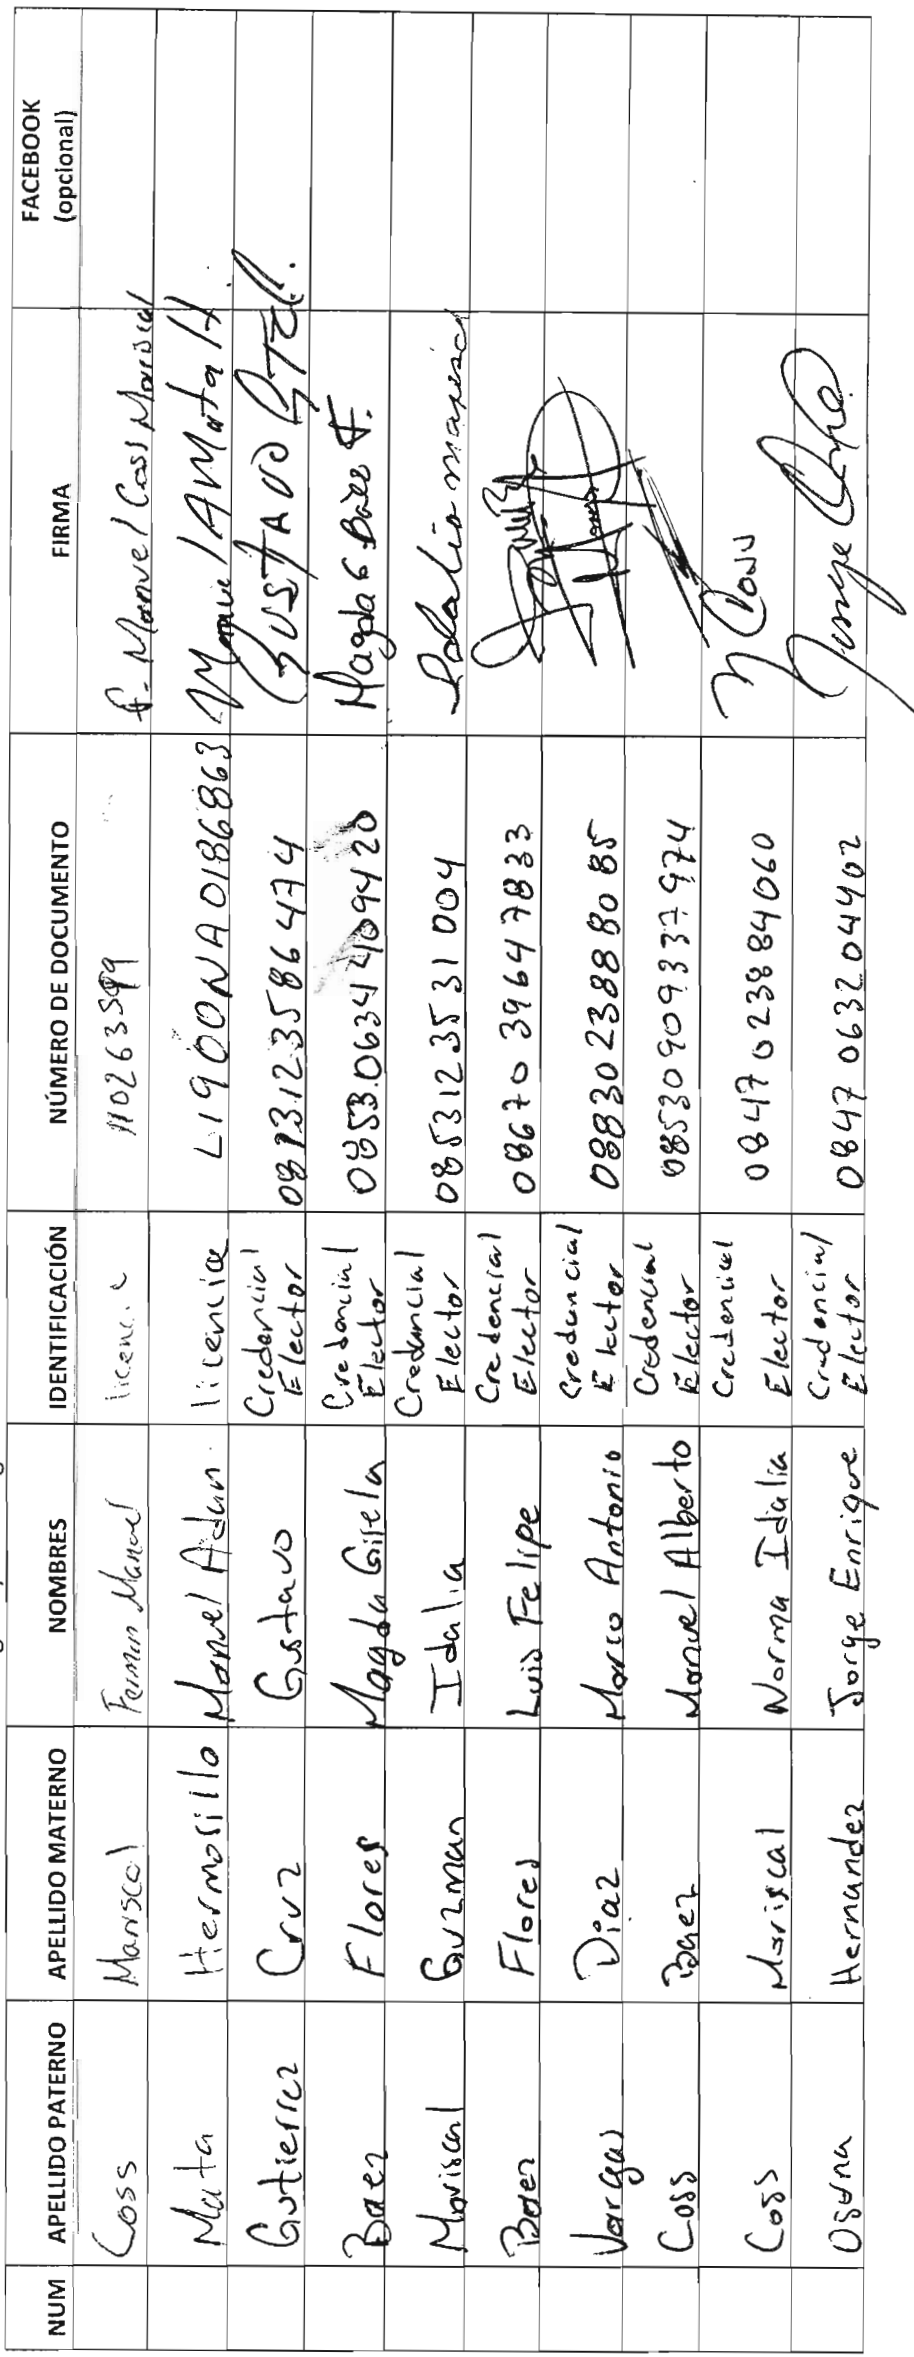 NUM APELLIDO PATERNO APELLIDO MATERNO NOMBRES IDENTIFICACIÓN NÚMERO DE DOCUMENTO FIRMA FACEBOOK (opcional)
Coss Mariscal Fermin Manuel licencia 11026359 F. Manuel Coss Mariscal
Mata Hermosillo Manuel Adan licencia L1900NA0186863 Manuel A Mata H.
Gutierrez Cruz Gustavo Credencial Elector 0813123586474 GUSTAVO GTZ C.
Baez Flores Magda Gisela Credencial Elector 0853063440 9420 Magda G Baez F.
Mariscal Guzman Idalia Credencial Elector 0853123531004 Idalia mariscal
Baez Flores Luis Felipe Credencial Elector 0867039647833
Vargas Diaz Marco Antonio Credencial Elector 0883023888085
Coss Baez Manuel Alberto Credencial Elector 0853090933 7974
Coss Mariscal Norma Idalia Credencial Elector 0847023884060 N Coss
Osuna Hernandez Jorge Enrique Credencial Elector 0847063204402 Jorge